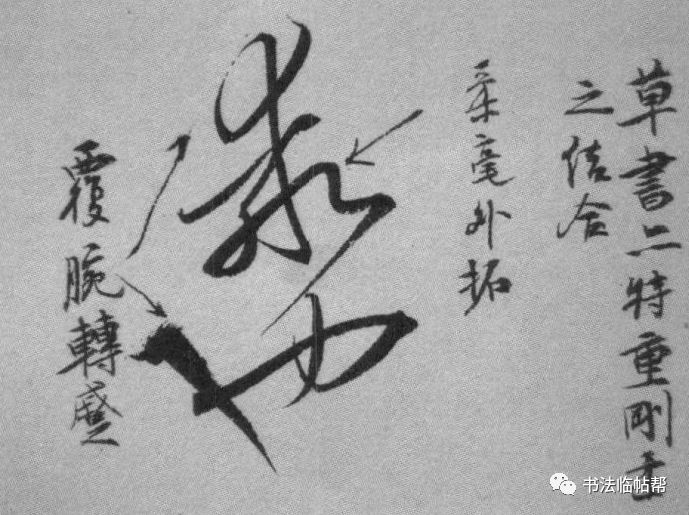 草書二特重剛柔
之結合
柔毫外拓
覆腕轉蹙
书法临帖帮